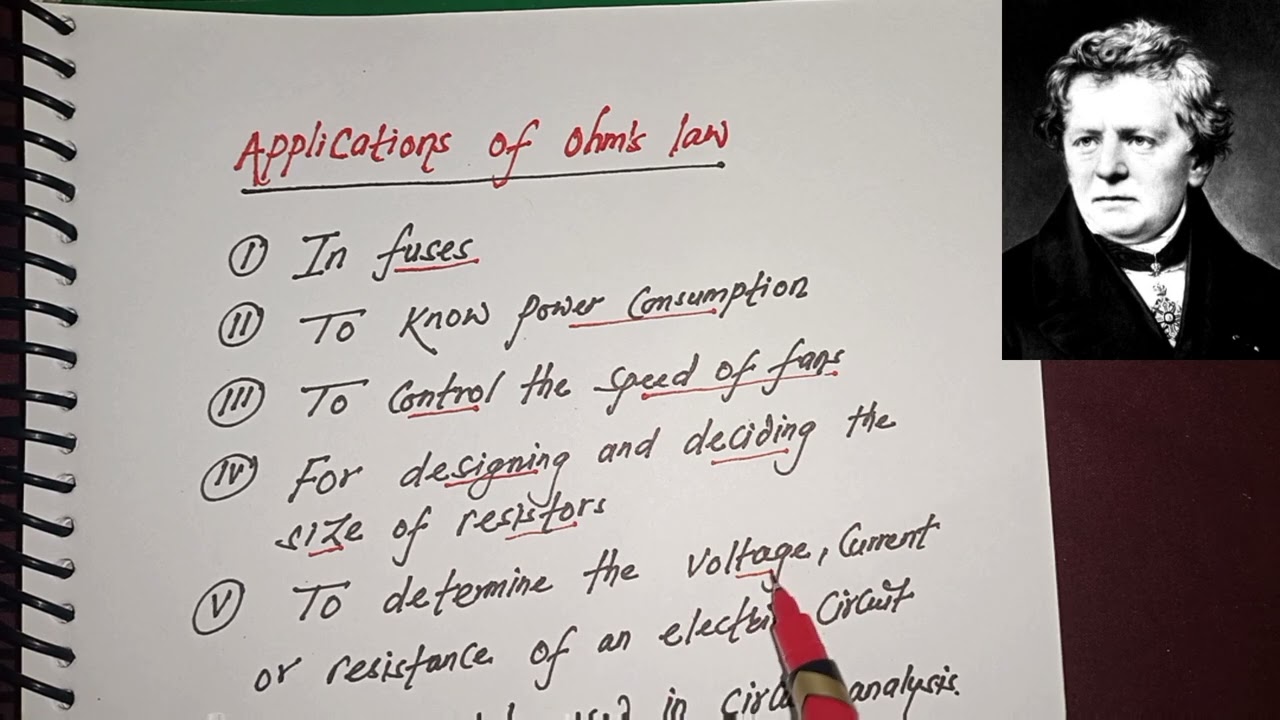 Applications of Ohm's law
I In fuses
II To know power consumption
III To control the speed of fans
IV For designing and deciding the
size of resistors
V To determine the voltage, current
or resistance of an electric circuit
used in circuit analysis.